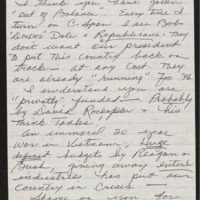 I think you have gone
"out of Balance". Every time I
turn on C-Span I see Bob
Dole & Republicans. They
dont want our president
to put this country back on
track - at any cost. They
are already "running" for '96
I understand you are
"privatly" funded - Probably
by David Rockefeller & his
think tanks
An immoral 20 year
war in Vietnam, Huge
deposit budgets by Reagan &
Bush, giving away entire
industries has put our
Country in Crisis -
Shame on you for